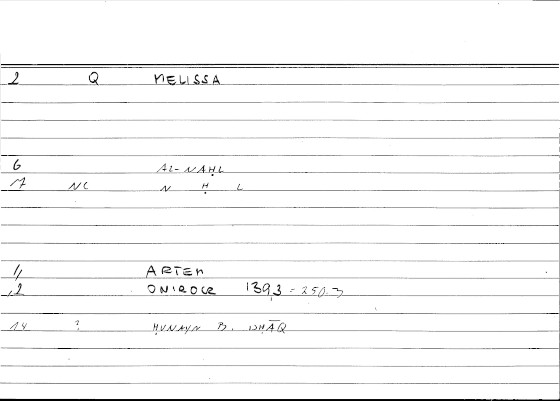 2 Q MELISSA
6 AL-NAḤL
7 NC N Ḥ L
1, ARTEM
,2 ONIROCR 139,3 = 250.7
14 ? ḤUNAYN B. ISḤĀQ